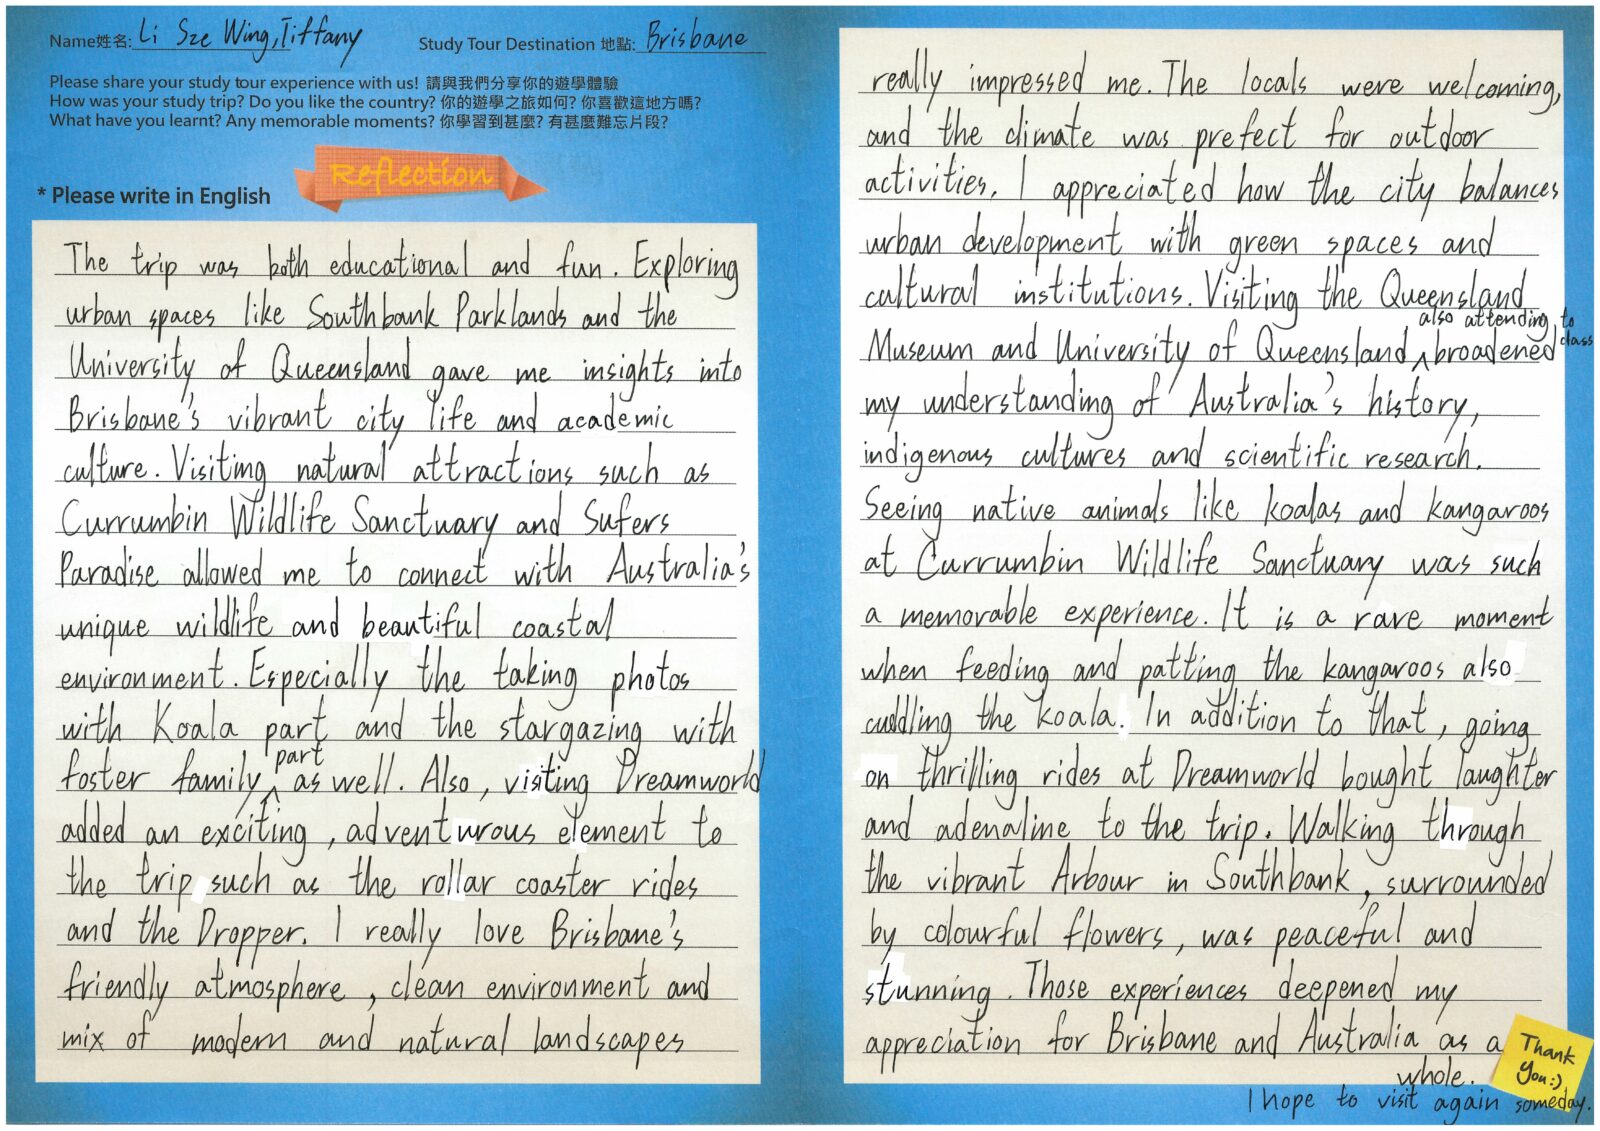 Name姓名: Li Sze Wing, Tiffany Study Tour Destination 地點: Brisbane
Please share your study tour experience with us! 請與我們分享你的遊學體驗
How was your study trip? Do you like the country? 你的遊學之旅如何? 你喜歡這地方嗎?
What have you learnt? Any memorable moments? 你學習到甚麼? 有甚麼難忘片段?
Reflection
* Please write in English
The trip was both educational and fun. Exploring
urban spaces like Southbank Parklands and the
University of Queensland gave me insights into
Brisbane's vibrant city life and academic
culture. Visiting natural attractions such as
Currumbin Wildlife Sanctuary and Sufers
Paradise allowed me to connect with Australia's
unique wildlife and beautiful coastal
environment. Especially the taking photos
with Koala part and the stargazing with
foster family part as well. Also, visiting Dreamworld
added an exciting, adventurous element to
the trip such as the rollar coaster rides
and the Dropper. I really love Brisbane's
friendly atmosphere, clean environment and
mix of modern and natural landscapes
really impressed me. The locals were welcoming,
and the climate was prefect for outdoor
activities. I appreciated how the city balances
urban development with green spaces and
cultural institutions. Visiting the Queensland
Museum and University of Queensland also attending to class broadened
my understanding of Australia's history,
indigenous cultures and scientific research.
Seeing native animals like koalas and kangaroos
at Currumbin Wildlife Sanctuary was such
a memorable experience. It is a rare moment
when feeding and patting the kangaroos also
cuddling the koala. In addition to that, going
on thrilling rides at Dreamworld bought laughter
and adenaline to the trip. Walking through
the vibrant Arbour in Southbank, surrounded
by colourful flowers, was peaceful and
stunning. Those experiences deepened my
appreciation for Brisbane and Australia as a
whole.
I hope to visit again someday.
Thank
You:)